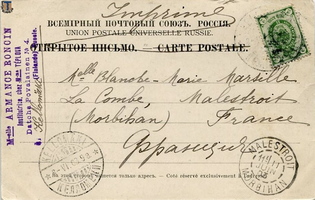 Imprimé
ВСЕМІРНЫЙ ПОЧТОВЫЙ СОЮЗЪ. РОССІЯ.
UNION POSTALE UNIVERSELLE RUSSIE.
ОТКРЫТОЕ ПИСЬМО. — CARTE POSTALE.
Melle Blanche-Marie Marsille
La Combe, Malestroit
(Morbihan) France
Франція
Melle ARMANCE RONCIN
Institutrice, chez
MALESTROIT
MORBIHAN
Côté réservé exclusivement à l'adresse